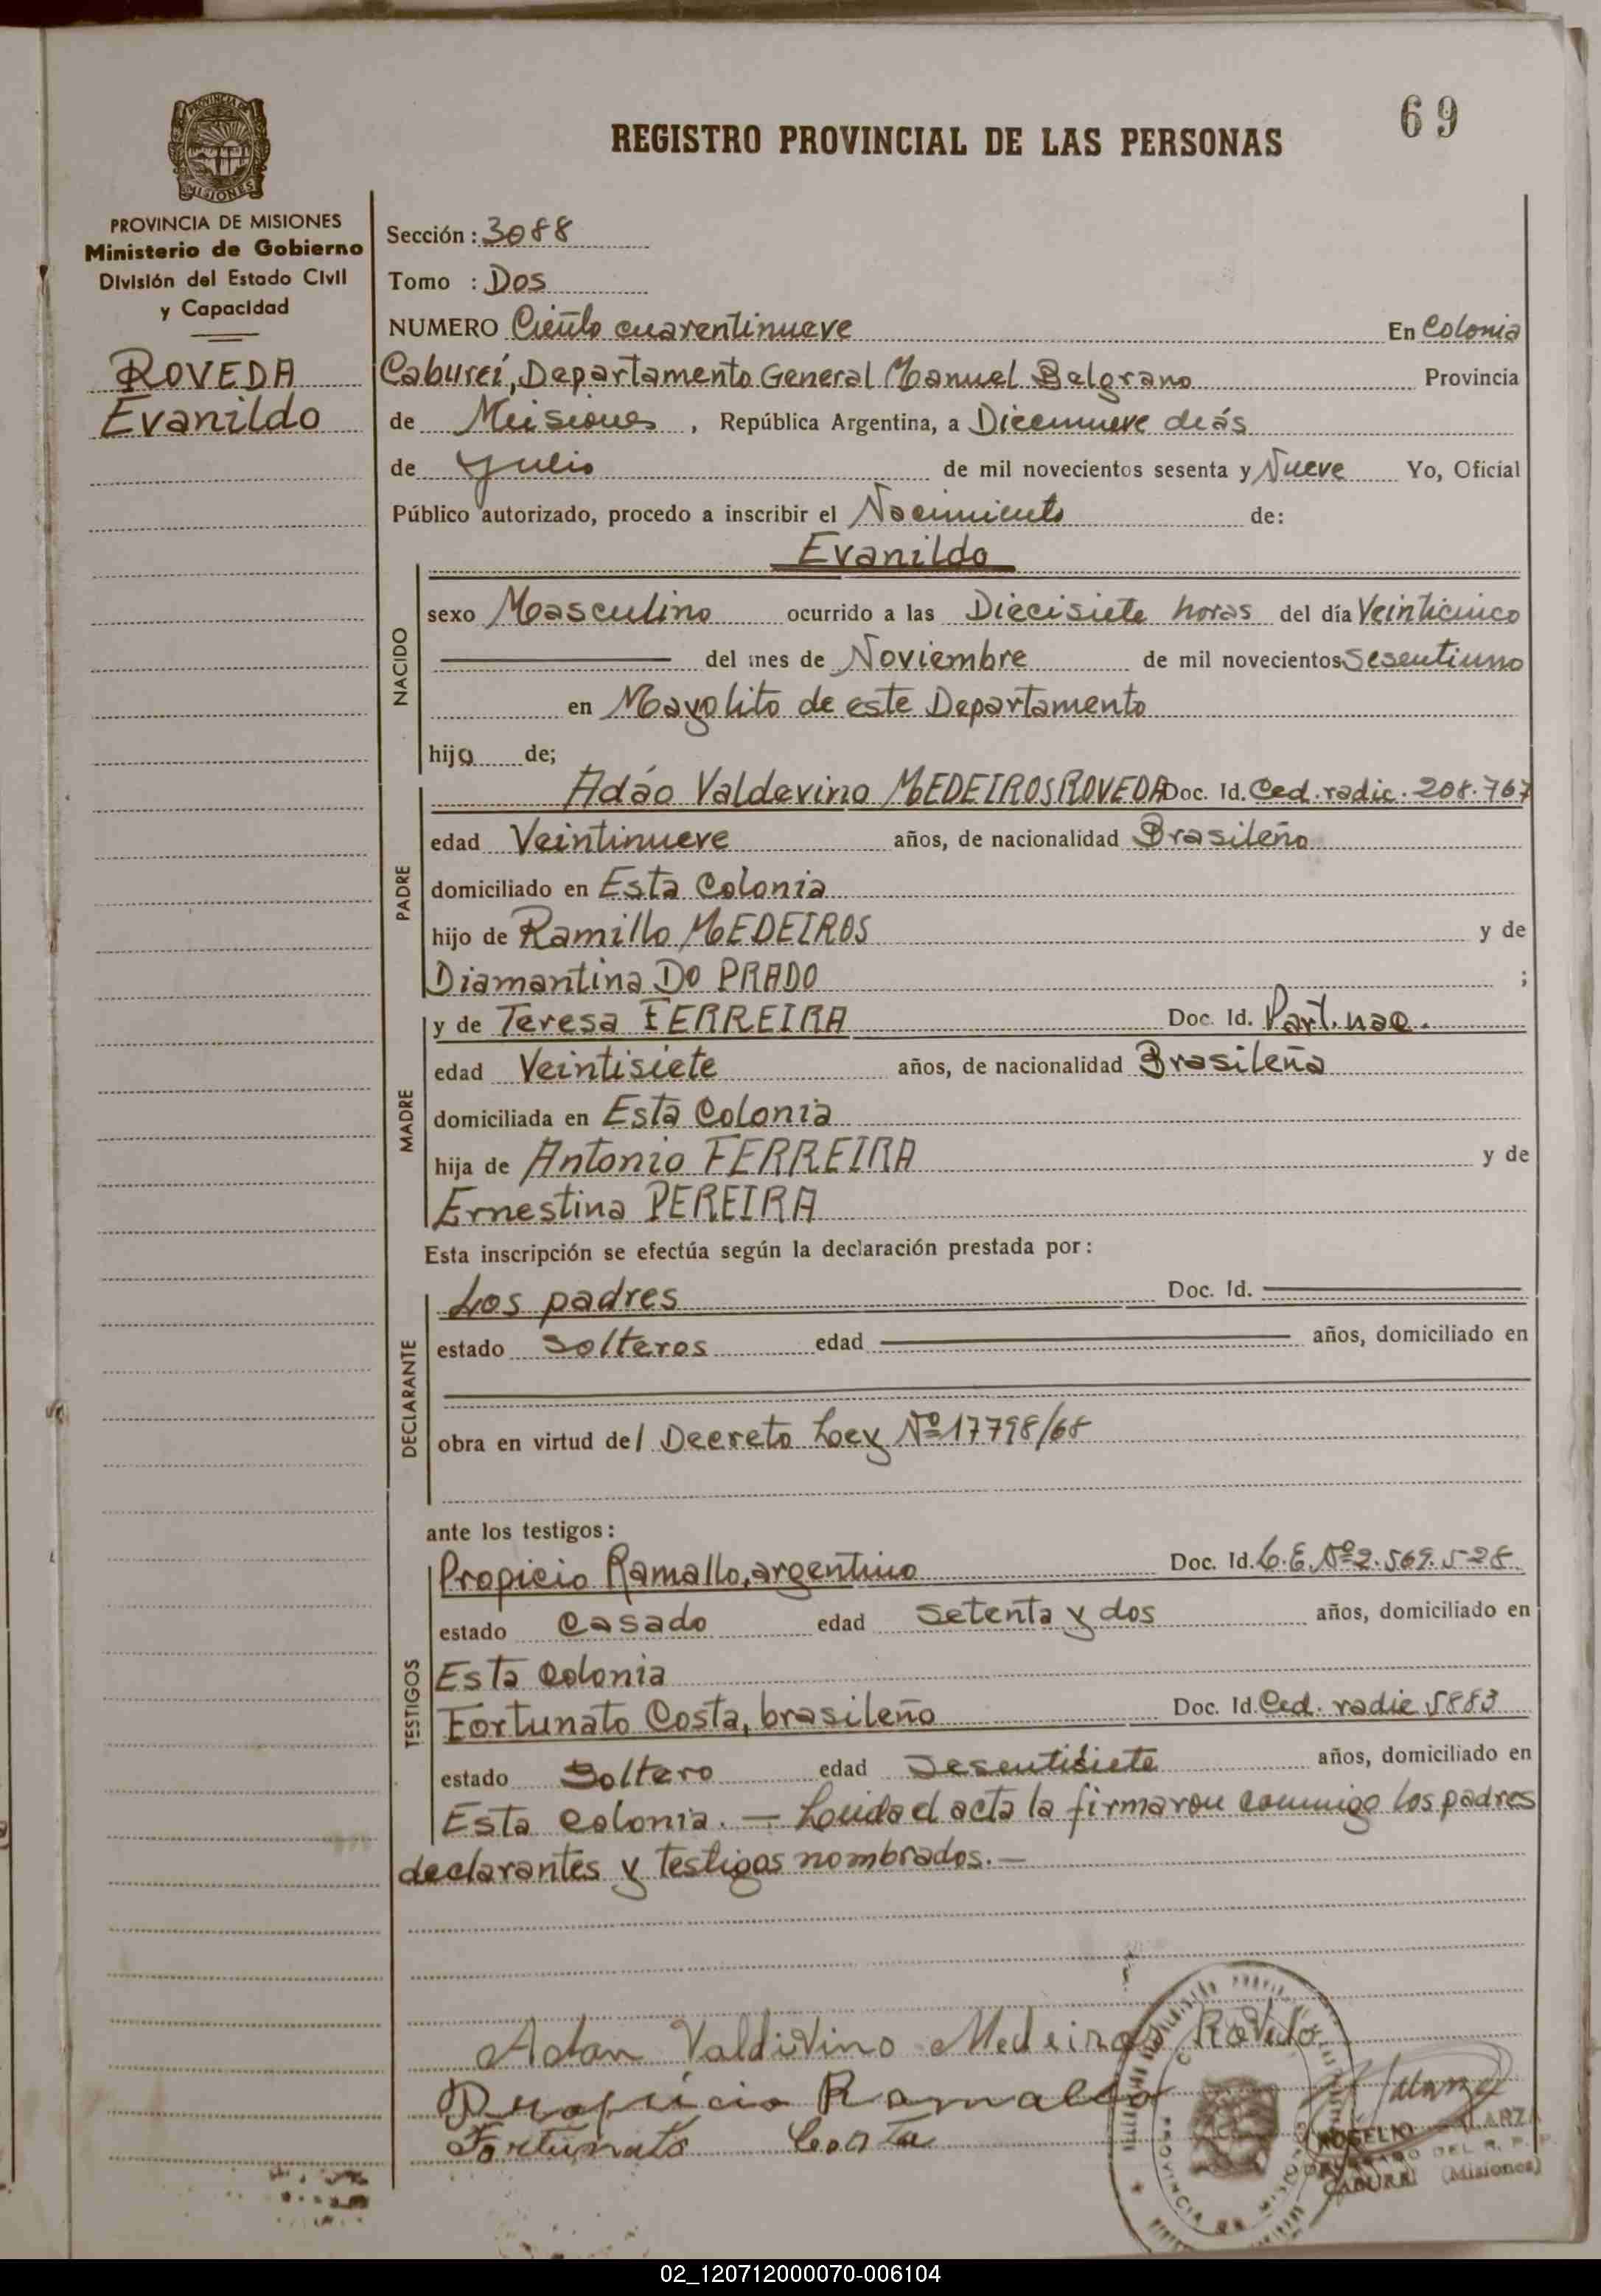 69
REGISTRO PROVINCIAL DE LAS PERSONAS
PROVINCIA DE MISIONES
PROVINCIA DE MISIONES
Ministerio de Gobierno
División del Estado Civil
y Capacidad
ROVEDA
Evanildo
Sección: 3088
Tomo : Dos
NUMERO Ciento cuarentinueve En Colonia
Caburei, Departamento General Manuel Belgrano Provincia
de Misiones, República Argentina, a Diecinueve días
de Julio de mil novecientos sesenta y Nueve Yo, Oficial
Público autorizado, procedo a inscribir el Nacimiento de:
Evanildo
NACIDO
sexo Masculino ocurrido a las Diecisiete horas del día Veinticinco
del mes de Noviembre de mil novecientos Sesentiuno
en Mayolito de este Departamento
hijo de;
PADRE
Adáo Valdevino MEDEIROS ROVEDA Doc. Id. Ced. radic. 208.767
edad Veintinueve años, de nacionalidad Brasileño
domiciliado en Esta Colonia
hijo de Ramillo MEDEIROS y de
Diamantina DO PRADO ;
MADRE
y de Teresa FERREIRA Doc. Id. Part. nac.
edad Veintisiete años, de nacionalidad Brasileña
domiciliada en Esta Colonia
hija de Antonio FERREIRA y de
Ernestina PEREIRA
Esta inscripción se efectúa según la declaración prestada por:
DECLARANTE
Los padres Doc. Id.
estado Solteros edad años, domiciliado en
obra en virtud del Decreto Ley Nº 17798/68
ante los testigos:
TESTIGOS
Propicio Ramallo, argentino Doc. Id. L.E. Nº 2.569.528
estado Casado edad Setenta y dos años, domiciliado en
Esta Colonia
Fortunato Costa, brasileño Doc. Id. Ced. radic 5883
estado Soltero edad Sesentisiete años, domiciliado en
Esta Colonia. — Leida el acta la firmaron conmigo los padres
declarantes y testigos nombrados. —
Adan Valdivino Medeiros Rovedo
Propicio Ramallo
Fortunato Costa
PROVINCIA DE MISIONES
ROGELIO
DEL R. P. P.
CABUREI (Misiones)
02_120712000070-006104